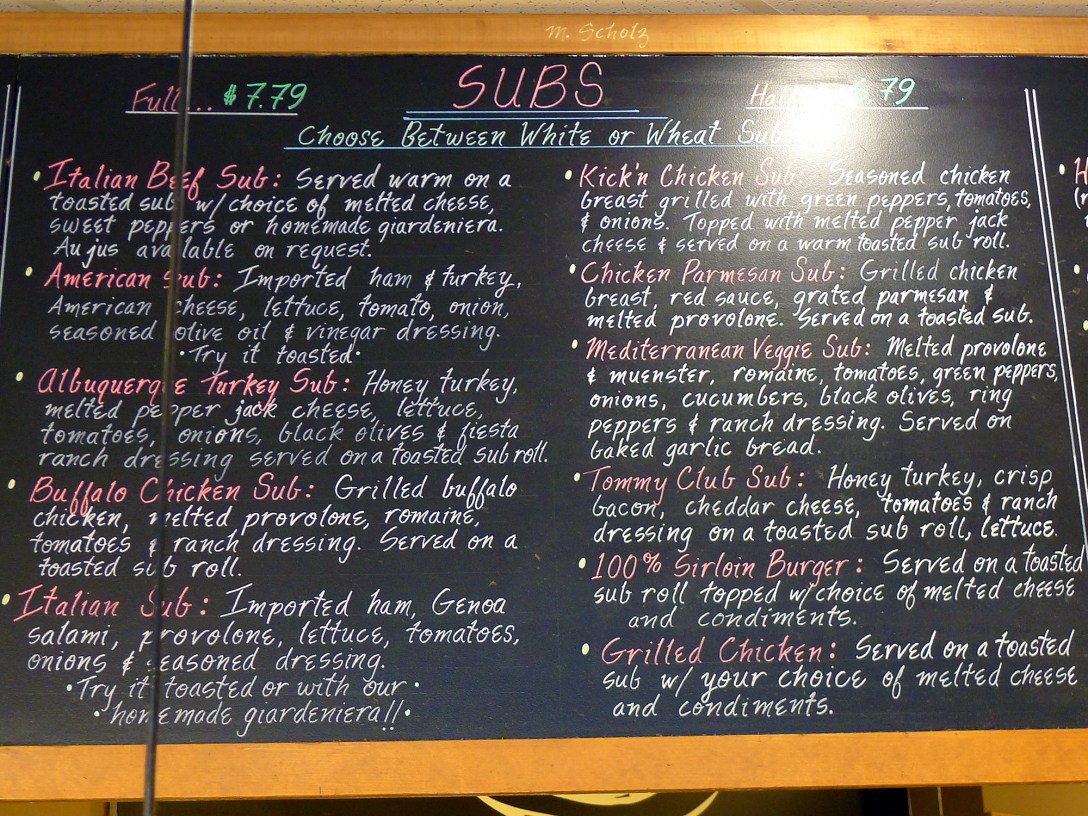 M. Scholz
SUBS
Full... $7.79
79
Choose Between White or Wheat Sub
• Italian Beef Sub: Served warm on a
toasted sub w/choice of melted cheese,
sweet peppers or homemade giardeniera.
Au jus available on request.
• American Sub: Imported ham & turkey,
American cheese, lettuce, tomato, onion,
seasoned olive oil & vinegar dressing.
• Try it toasted •
• Albuquerque Turkey Sub: Honey turkey,
melted pepper jack cheese, lettuce,
tomatoes, onions, black olives & fiesta
ranch dressing served on a toasted sub roll.
• Buffalo Chicken Sub: Grilled buffalo
chicken, melted provolone, romaine,
tomatoes & ranch dressing. Served on a
toasted sub roll.
• Italian Sub: Imported ham, Genoa
salami, provolone, lettuce, tomatoes,
onions & seasoned dressing.
• Try it toasted or with our •
• homemade giardeniera!! •
• Kick'n Chicken Sub: Seasoned chicken
breast grilled with green peppers, tomatoes,
& onions. Topped with melted pepper jack
cheese & served on a warm toasted sub roll.
• Chicken Parmesan Sub: Grilled chicken
breast, red sauce, grated parmesan &
melted provolone. Served on a toasted sub.
• Mediterranean Veggie Sub: Melted provolone
& muenster, romaine, tomatoes, green peppers,
onions, cucumbers, black olives, ring
peppers & ranch dressing. Served on
baked garlic bread.
• Tommy Club Sub: Honey turkey, crisp
bacon, cheddar cheese, tomatoes & ranch
dressing on a toasted sub roll, lettuce.
• 100% Sirloin Burger: Served on a toasted
sub roll topped w/choice of melted cheese
and condiments.
• Grilled Chicken: Served on a toasted
sub w/ your choice of melted cheese
and condiments.